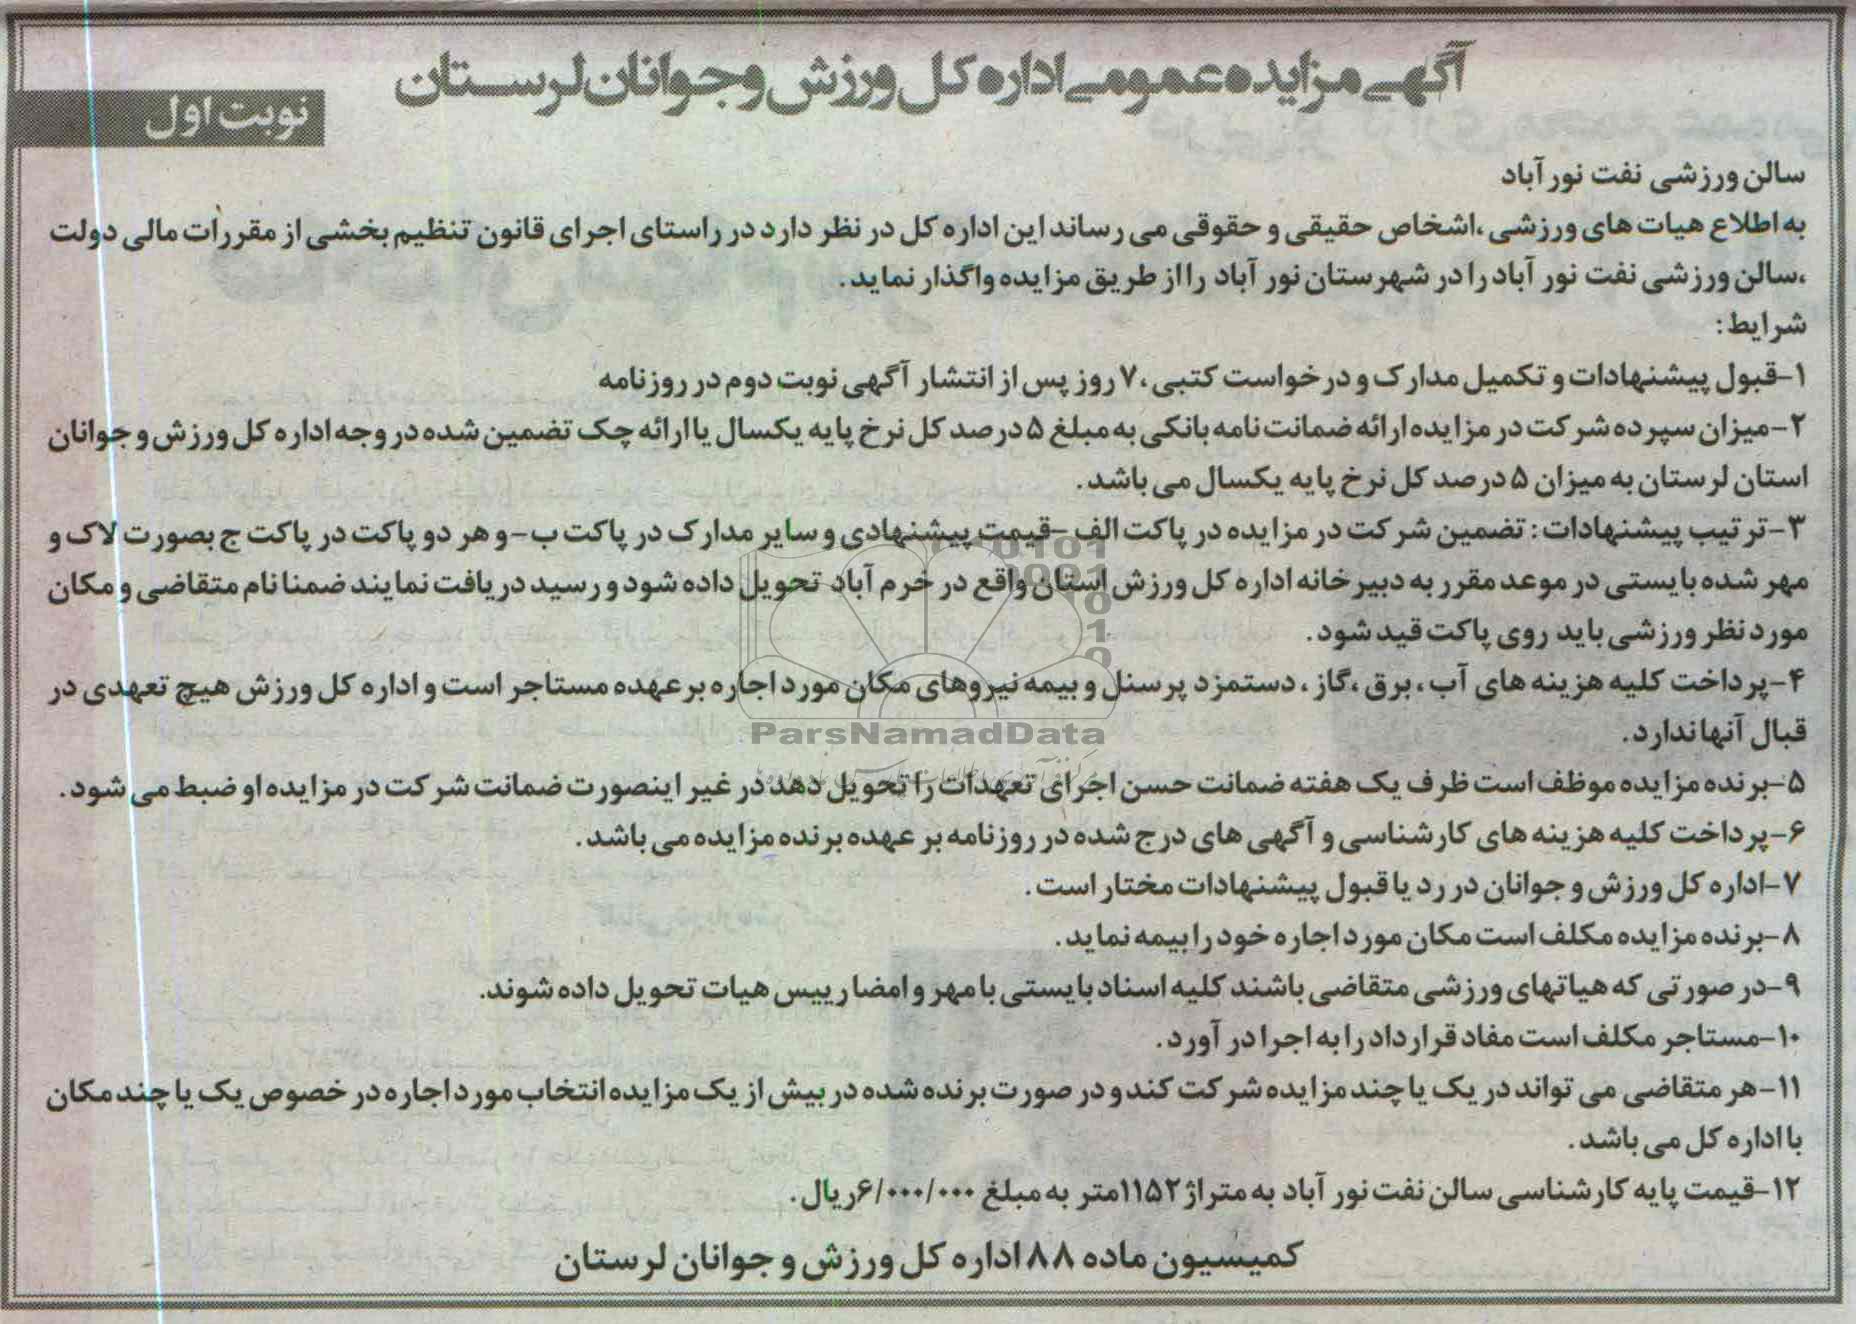 آگهی مزایده عمومی اداره کل ورزش و جوانان لرستان
نوبت اول
سالن ورزشی نفت نورآباد
به اطلاع هیات های ورزشی ،اشخاص حقیقی و حقوقی می رساند این اداره کل در نظر دارد در راستای اجرای قانون تنظیم بخشی از مقررات مالی دولت
،سالن ورزشی نفت نور آباد را در شهرستان نور آباد را از طریق مزایده واگذار نماید.
شرایط:
۱-قبول پیشنهادات و تکمیل مدارک و درخواست کتبی ،۷ روز پس از انتشار آگهی نوبت دوم در روزنامه
۲-میزان سپرده شرکت در مزایده ارائه ضمانت نامه بانکی به مبلغ ۵ درصد کل نرخ پایه یکسال یا ارائه چک تضمین شده در وجه اداره کل ورزش و جوانان
استان لرستان به میزان ۵ درصد کل نرخ پایه یکسال می باشد.
۳-ترتیب پیشنهادات: تضمین شرکت در مزایده در پاکت الف-قیمت پیشنهادی و سایر مدارک در پاکت ب-و هر دو پاکت در پاکت ج بصورت لاک و
مهر شده بایستی در موعد مقرر به دبیرخانه اداره کل ورزش استان واقع در خرم آباد تحویل داده شود و رسید دریافت نمایند ضمنا نام متقاضی و مکان
مورد نظر ورزشی باید روی پاکت قید شود.
۴-پرداخت کلیه هزینه های آب ، برق ،گاز ، دستمزد پرسنل و بیمه نیروهای مکان مورد اجاره بر عهده مستاجر است و اداره کل ورزش هیچ تعهدی در
قبال آنها ندارد.
۵-برنده مزایده موظف است ظرف یک هفته ضمانت حسن اجرای تعهدات را تحویل دهد در غیر اینصورت ضمانت شرکت در مزایده او ضبط می شود.
۶-پرداخت کلیه هزینه های کارشناسی و آگهی های درج شده در روزنامه بر عهده برنده مزایده می باشد.
۷-اداره کل ورزش و جوانان در رد یا قبول پیشنهادات مختار است.
۸-برنده مزایده مکلف است مکان مورد اجاره خود را بیمه نماید.
۹-در صورتی که هیاتهای ورزشی متقاضی باشند کلیه اسناد بایستی با مهر و امضا رییس هیات تحویل داده شوند.
۱۰-مستاجر مکلف است مفاد قرارداد را به اجرا در آورد.
۱۱-هر متقاضی می تواند در یک یا چند مزایده شرکت کند و در صورت برنده شده در بیش از یک مزایده انتخاب مورد اجاره در خصوص یک یا چند مکان
با اداره کل می باشد.
۱۲-قیمت پایه کارشناسی سالن نفت نور آباد به متراژ ۱۱۵۲متر به مبلغ ۶/۰۰۰/۰۰۰ریال.
کمیسیون ماده ۸۸ اداره کل ورزش و جوانان لرستان
ParsNamadData